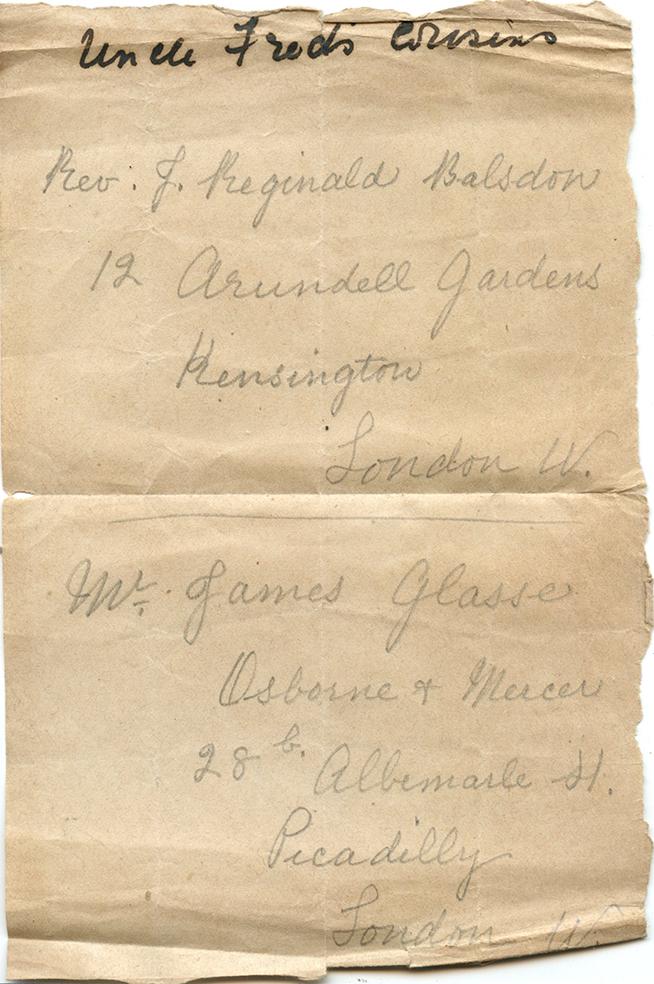 Uncle Fred's Cousins
Rev. J. Reginald Balsdon
12 Arundell Gardens
Kensington
London W.
Mr. James Glasse
Osborne & Mercer
28 b. Albemarle St.
Picadilly
London W.